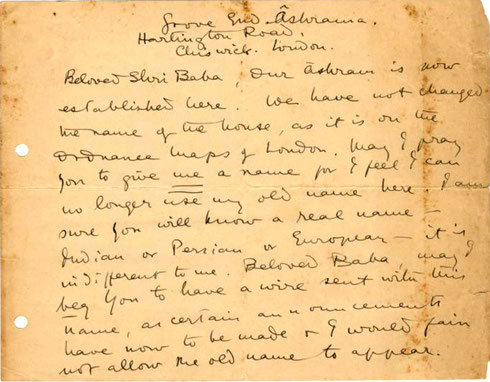 Grove End Âshrama.
Hartington Road,
Chiswick. London.
Beloved Shri Baba, Our Âshram is now
established here. We have not changed
the name of the house, as it is on the
Ordnance maps of London. May I pray
You to give me a name for I feel I can
no longer use my old name here. I am
sure You will know a real name –
Indian or Persian or European – it is
indifferent to me. Beloved Baba, may I
beg You to have a wire sent with this
name, as certain announcements
have now to be made & I would fain
not allow the old name to appear.